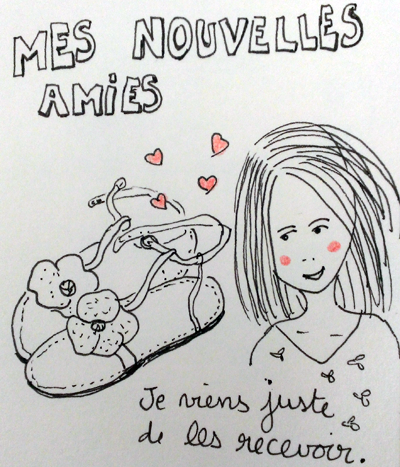 MES NOUVELLES
AMiES
Je viens juste
de les recevoir.